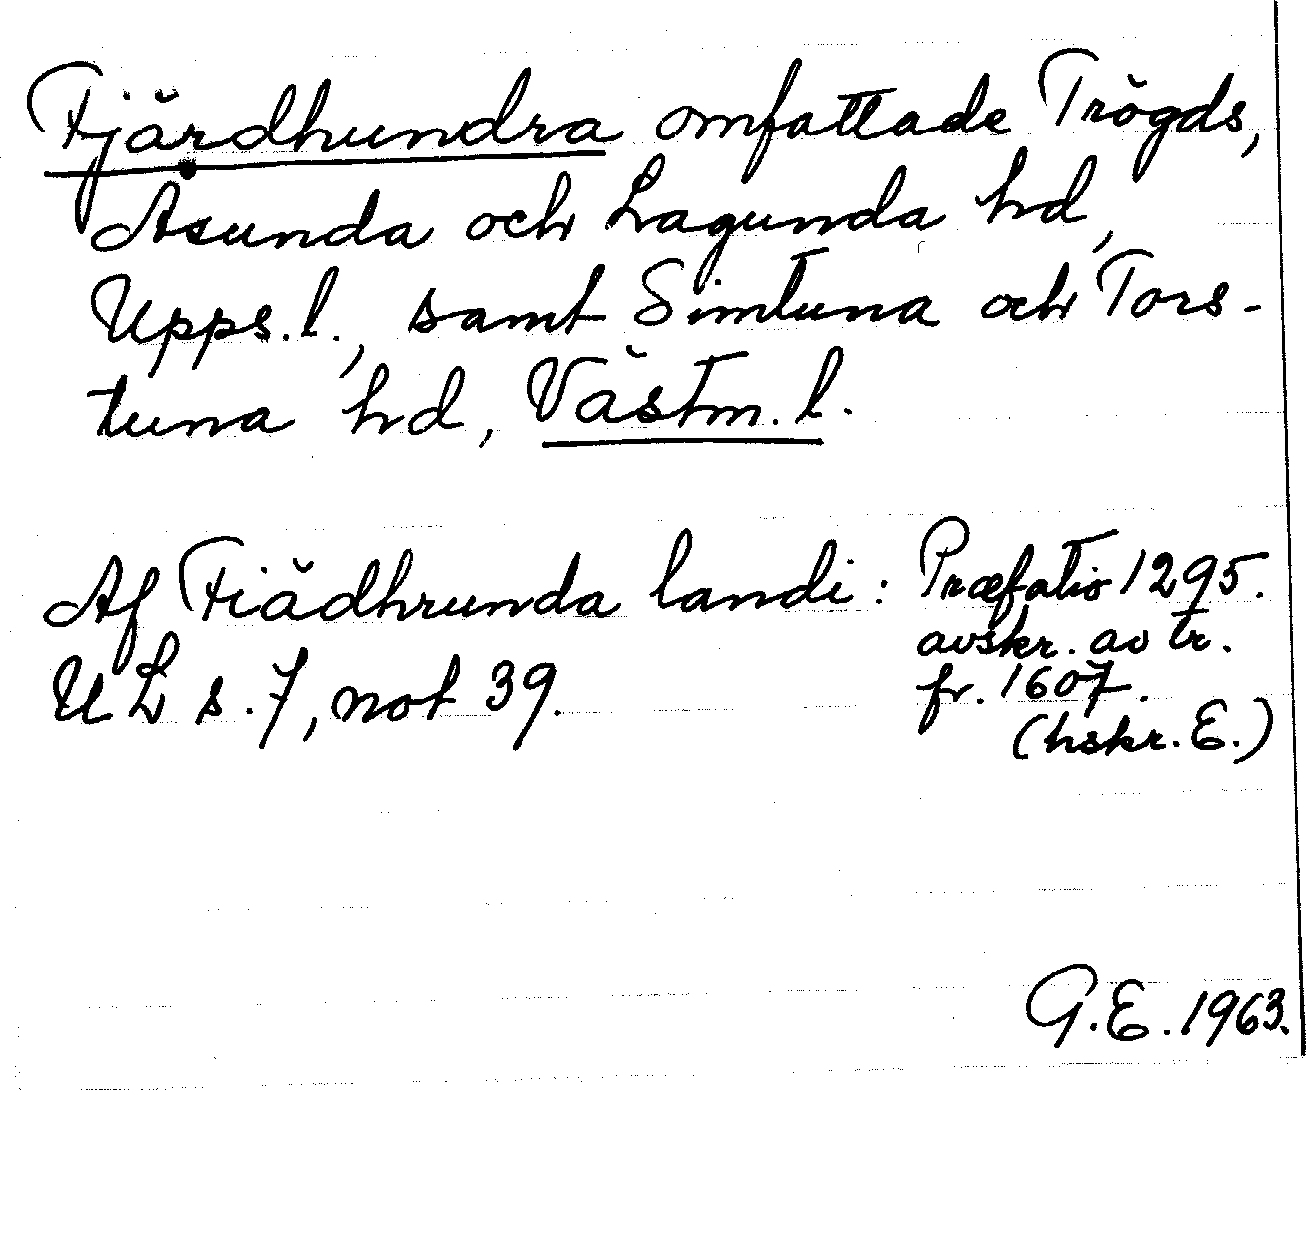 Fjärdhundra omfattade Trögds,
Asunda och Lagunda hd,
Upps. l., samt Simtuna och Tors-
tuna hd, Västm. l.
Af Fiädhrunda landi: Præfatio 1295.
avskr. av tr.
UL s. 7, not 39.
fr. 1607.
(hskr. E.)
G.E. 1963.